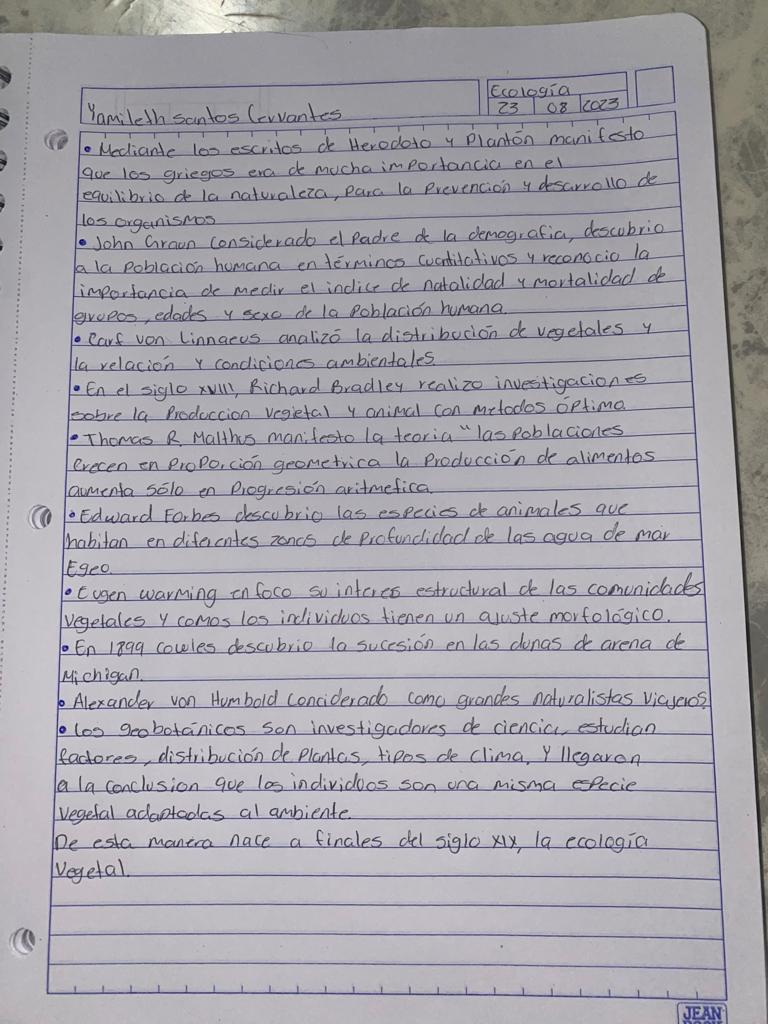 Ecología
Yamileth santos Cervantes 23 08 2023
• Mediante los escritos de Herodoto y Plantón manifesto
que los griegos era de mucha importancia en el
equilibrio de la naturaleza, para la Prevención y desarrollo de
los organismos
• John Graun considerado el Padre de la demografia, descubrio
a la Población humana en términos cuantitativos y reconocio la
importancia de medir el indice de natalidad y mortalidad de
grupos, edades y sexo de la Población humana.
• Carf von Linnaeus analizó la distribución de vegetales y
la relación y condiciones ambientales.
• En el siglo XVIII, Richard Bradley realizo investigaciones
sobre la Produccion vegetal y animal con metodos óptimo.
• Thomas R. Malthus manifesto la teoria "las Poblaciones
crecen en Proporción geometrica la Producción de alimentos
aumenta sólo en Progresión aritmetica.
• Edward Forbes descubrio las especies de animales que
habitan en diferentes zonas de Profundidad de las agua de mar
Egeo.
• Eugen warming enfoco su interes estructural de las comunidades
vegetales y comos los individuos tienen un ajuste morfológico.
• En 1899 cowles descubrio la sucesión en las dunas de arena de
Michigan.
• Alexander von Humbold Conciderado como grandes naturalistas viajeros.
• Los geobotánicos son investigadores de ciencia, estudian
factores, distribución de Plantas, tipos de clima, y llegaron
a la conclusion que los individuos son una misma especie
vegetal adaptadas al ambiente.
De esta manera nace a finales del siglo XIX, la ecología
vegetal.
JEAN
BOOK